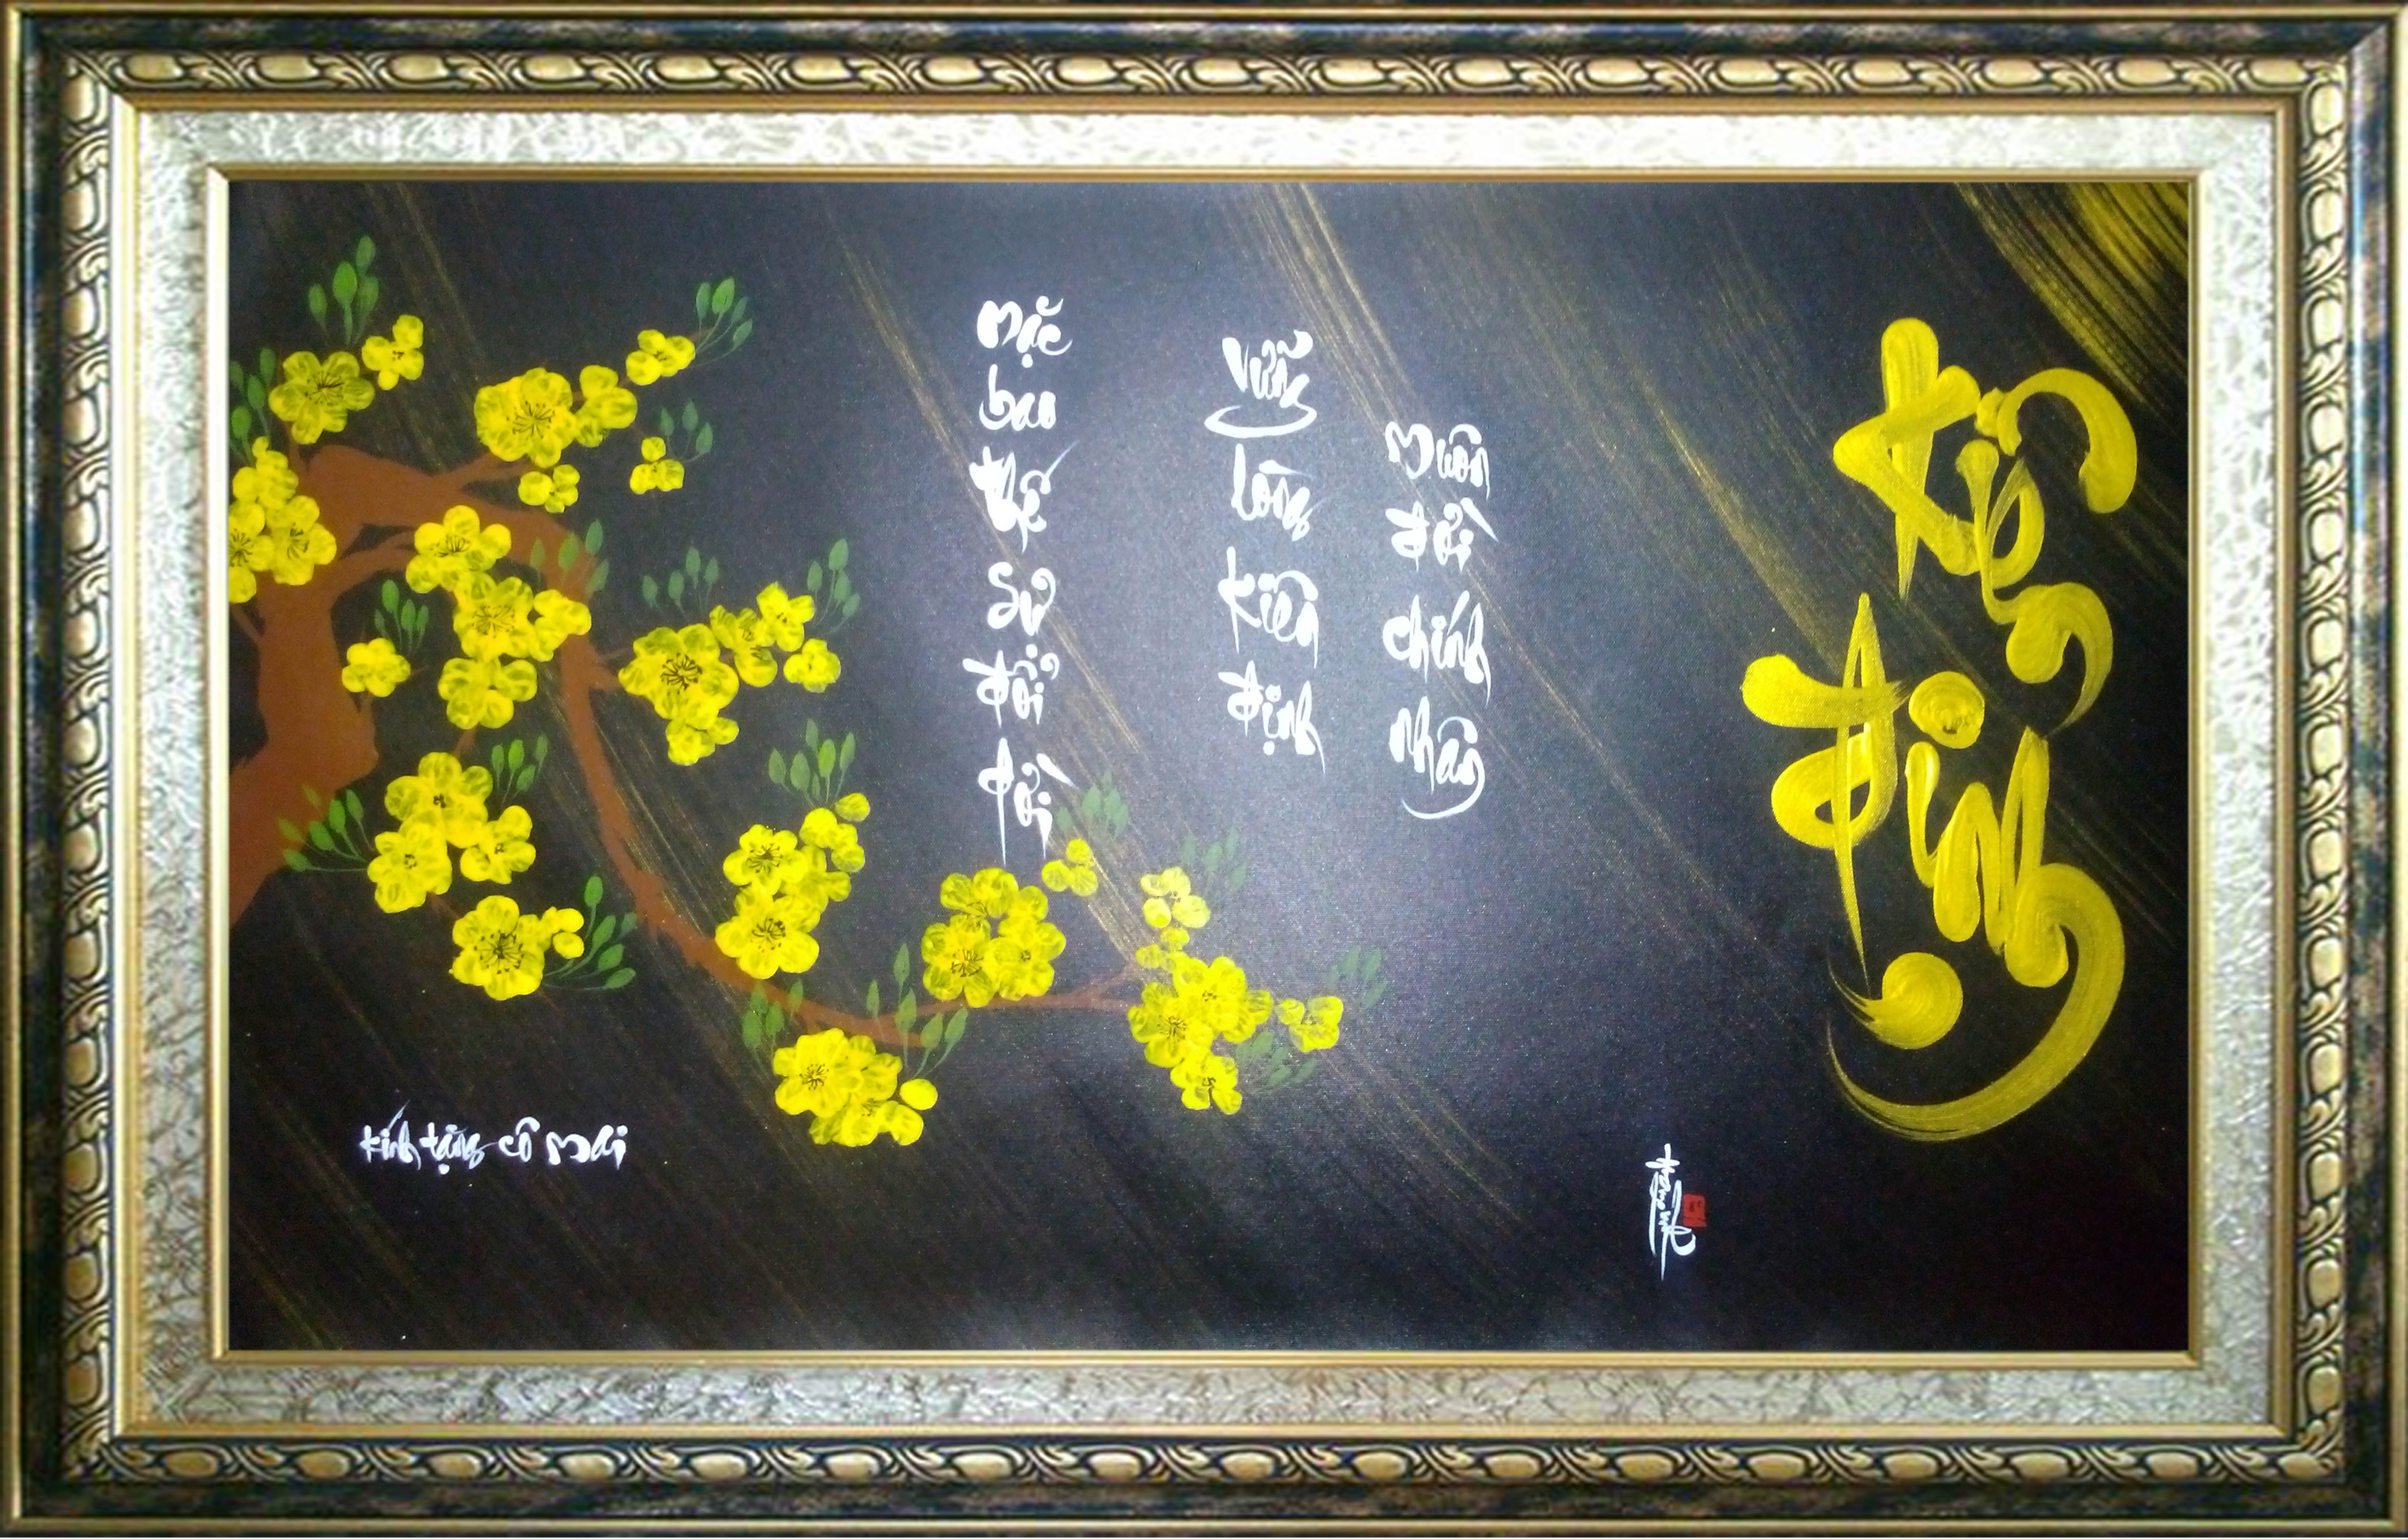 Mặc bao thế sự đổi dời
Vững lòng kiên định
Muôn đời chính nhân
Kiên định
Kính tặng cô Mai